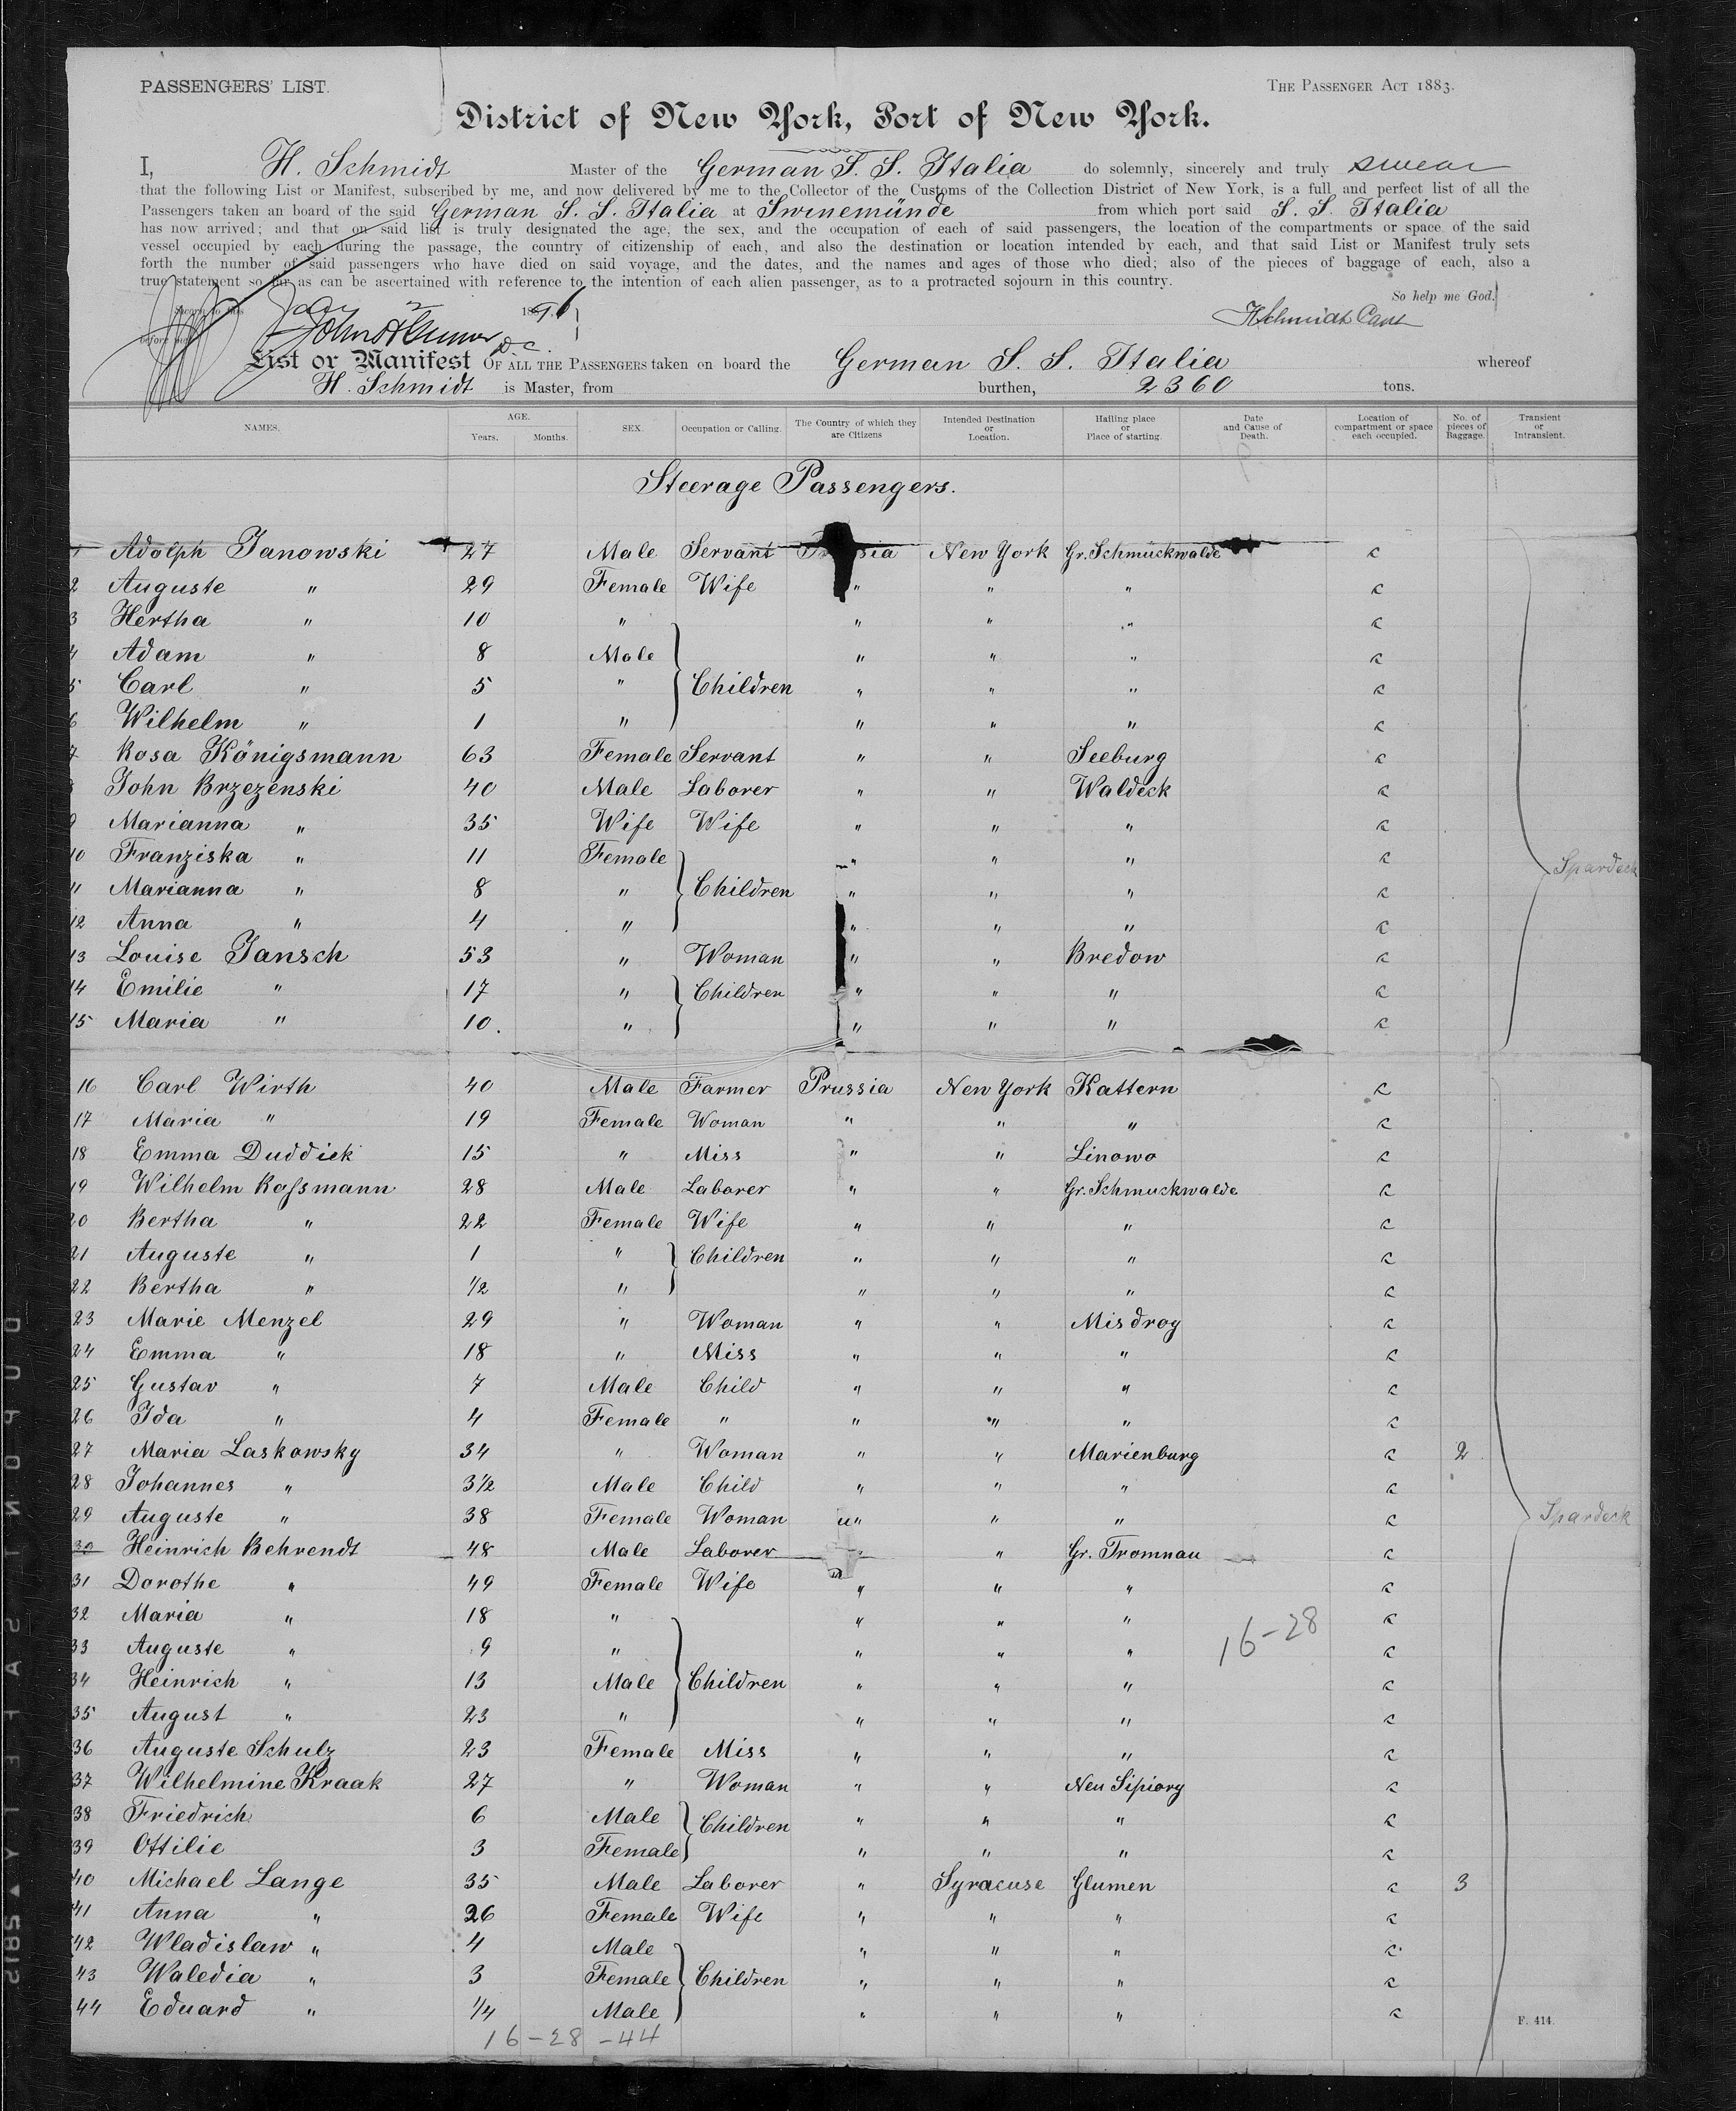 PASSENGERS' LIST.
THE PASSENGER ACT 1883.
District of New York, Port of New York.
I, H. Schmidt Master of the German S. S. Italia do solemnly, sincerely and truly swear
that the following List or Manifest, subscribed by me, and now delivered by me to the Collector of the Customs of the Collection District of New York, is a full and perfect list of all the
Passengers taken an board of the said German S. S. Italia at Swinemünde from which port said S. S. Italia
has now arrived; and that on said list is truly designated the age, the sex, and the occupation of each of said passengers, the location of the compartments or space of the said
vessel occupied by each during the passage, the country of citizenship of each, and also the destination or location intended by each, and that said List or Manifest truly sets
forth the number of said passengers who have died on said voyage, and the dates, and the names and ages of those who died; also of the pieces of baggage of each, also a
true statement so far as can be ascertained with reference to the intention of each alien passenger, as to a protracted sojourn in this country.
So help me God.
Sworn to this 1891
HSchmidt Capt
before me
List or Manifest OF ALL THE PASSENGERS taken on board the German S. S. Italia whereof
H. Schmidt is Master, from burthen, 2360 tons.
NAMES. AGE. Years. Months. SEX. Occupation or Calling. The Country of which they are Citizens Intended Destination or Location. Hailing place or Place of starting. Date and Cause of Death. Location of compartment or space each occupied. No. of pieces of Baggage. Transient or Intransient.
Steerage Passengers.
1 Adolph Janowski 27 Male Servant Prussia New York Gr. Schmückwalde c
2 Auguste " 29 Female Wife " " " c
3 Hertha " 10 " " " " c
4 Adam " 8 Male " " " c
5 Carl " 5 " Children " " " c
6 Wilhelm " 1 " " " " c
7 Rosa Königsmann 63 Female Servant " " Seeburg c
John Brzezenski 40 Male Laborer " " Waldeck c
9 Marianna " 35 Wife Wife " " " c
10 Franziska " 11 Female " " " c
11 Marianna " 8 " Children " " " c Spardeck
12 Anna " 4 " " " " c
13 Louise Jansch 53 " Woman " " Bredow c
14 Emilie " 17 " Children " " " c
15 Maria " 10. " " " " c
16 Carl Wirth 40 Male Farmer Prussia New York Kattern c
17 Maria " 19 Female Woman " " " c
18 Emma Duddick 15 " Miss " " Linowo c
19 Wilhelm Roſsmann 28 Male Laborer " " Gr. Schmuckwalde c
20 Bertha " 22 Female Wife " " " c
21 Auguste " 1 " Children " " " c
22 Bertha " 1/2 " " " " c
23 Marie Menzel 29 " Woman " " Misdroy c
24 Emma " 18 " Miss " " " c
25 Gustav " 7 Male Child " " " c
26 Ida " 4 Female " " " " c
27 Maria Laskowsky 34 " Woman " " Marienburg c 2
28 Johannes " 3 1/2 Male Child " " " c
29 Auguste " 38 Female Woman " " " c Spardeck
30 Heinrich Behrendt 48 Male Laborer " " Gr. Tromnau c
31 Dorothe " 49 Female Wife " " " c
32 Maria " 18 " " " " c
33 Auguste " 9 " " " " 16-28 c
34 Heinrich " 13 Male Children " " " c
35 August " 23 " " " " c
36 Auguste Schulz 23 Female Miss " " " c
37 Wilhelmine Kraak 27 " Woman " " Neu Sipiory c
38 Friedrich 6 Male Children " " " c
39 Ottilie 3 Female " " " c
40 Michael Lange 35 Male Laborer " Syracuse Glumen c 3
41 Anna " 26 Female Wife " " " c
42 Wladislaw " 4 Male " " " c
43 Waledia " 3 Female Children " " " c
44 Eduard " 1/4 Male " " " c
F. 414.
16-28-44